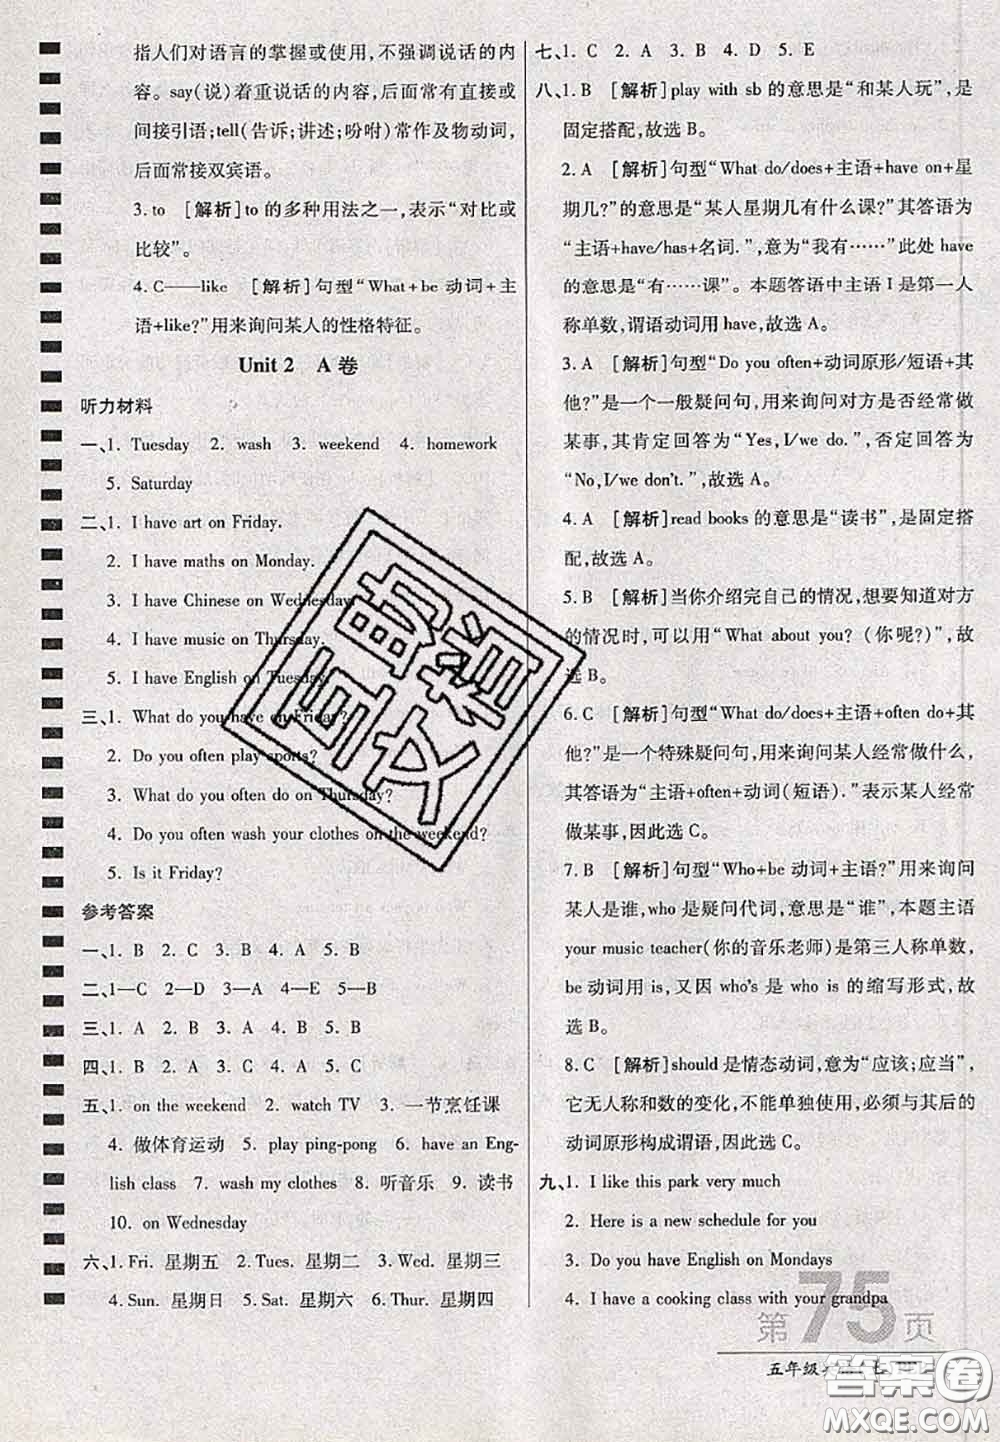 指人们对语言的掌握或使用,不强调说话的内
容。say(说)着重说话的内容,后面常有直接或
间接引语;tell(告诉;讲述;吩咐)常作及物动词,
后面常接双宾语。
3. to [解析]to 的多种用法之一,表示“对比或
比较”。
4. C——like [解析]句型“What+be 动词+主
语+like?”用来询问某人的性格特征。
Unit 2 A 卷
听力材料
一、1. Tuesday 2. wash 3. weekend 4. homework
5. Saturday
二、1. I have art on Friday.
2. I have maths on Monday.
3. I have Chinese on Wednesday.
4. I have music on Thursday.
5. I have English on Tuesday.
三、1. What do you have on Friday?
2. Do you often play sports?
3. What do you often do on Thursday?
4. Do you often wash your clothes on the weekend?
5. Is it Friday?
参考答案
一、1. B 2. C 3. B 4. A 5. B
二、1—C 2—D 3—A 4—E 5—B
三、1. A 2. B 3. A 4. B 5. B
四、1. B 2. A 3. B 4. A 5. B
五、1. on the weekend 2. watch TV 3. 一节烹饪课
4. 做体育运动 5. play ping-pong 6. have an Eng-
lish class 7. wash my clothes 8. 听音乐 9. 读书
10. on Wednesday
六、1. Fri. 星期五 2. Tues. 星期二 3. Wed. 星期三
4. Sun. 星期日 5. Sat. 星期六 6. Thur. 星期四
七、1. C 2. A 3. B 4. D 5. E
八、1. B [解析]play with sb 的意思是“和某人玩”,是
固定搭配,故选 B。
2. A [解析]句型“What do/does+主语+have on+星
期几?”的意思是“某人星期几有什么课?”其答语为
“主语+have/has+名词.”,意为“我有……”此处 have
的意思是“有……课”。本题答语中主语 I 是第一人
称单数,谓语动词用 have,故选 A。
3. A [解析]句型“Do you often+动词原形/短语+其
他?”是一个一般疑问句,用来询问对方是否经常做
某事,其肯定回答为“Yes, I/we do.”,否定回答为
“No, I/we don't.”,故选 A。
4. A [解析]read books 的意思是“读书”,是固定搭
配,故选 A。
5. B [解析]当你介绍完自己的情况,想要知道对方
的情况时,可以用“What about you?(你呢?)”,故
选 B。
6. C [解析]句型“What do/does+主语+often do+其
他?”是一个特殊疑问句,用来询问某人经常做什么,
其答语为“主语+often+动词(短语).”表示某人经常
做某事,因此选 C。
7. B [解析]句型“Who+be 动词+主语?”用来询问
某人是谁,who 是疑问代词,意思是“谁”,本题主语
your music teacher(你的音乐老师)是第三人称单数,
be 动词用 is,又因 who's 是 who is 的缩写形式,故
选 B。
8. C [解析]should 是情态动词,意为“应该;应当”,
它无人称和数的变化,不能单独使用,必须与其后的
动词原形构成谓语,因此选 C。
九、1. I like this park very much
2. Here is a new schedule for you
3. Do you have English on Mondays
4. I have a cooking class with your grandpa
第75页
五年级
答案圈
MXQE.COM